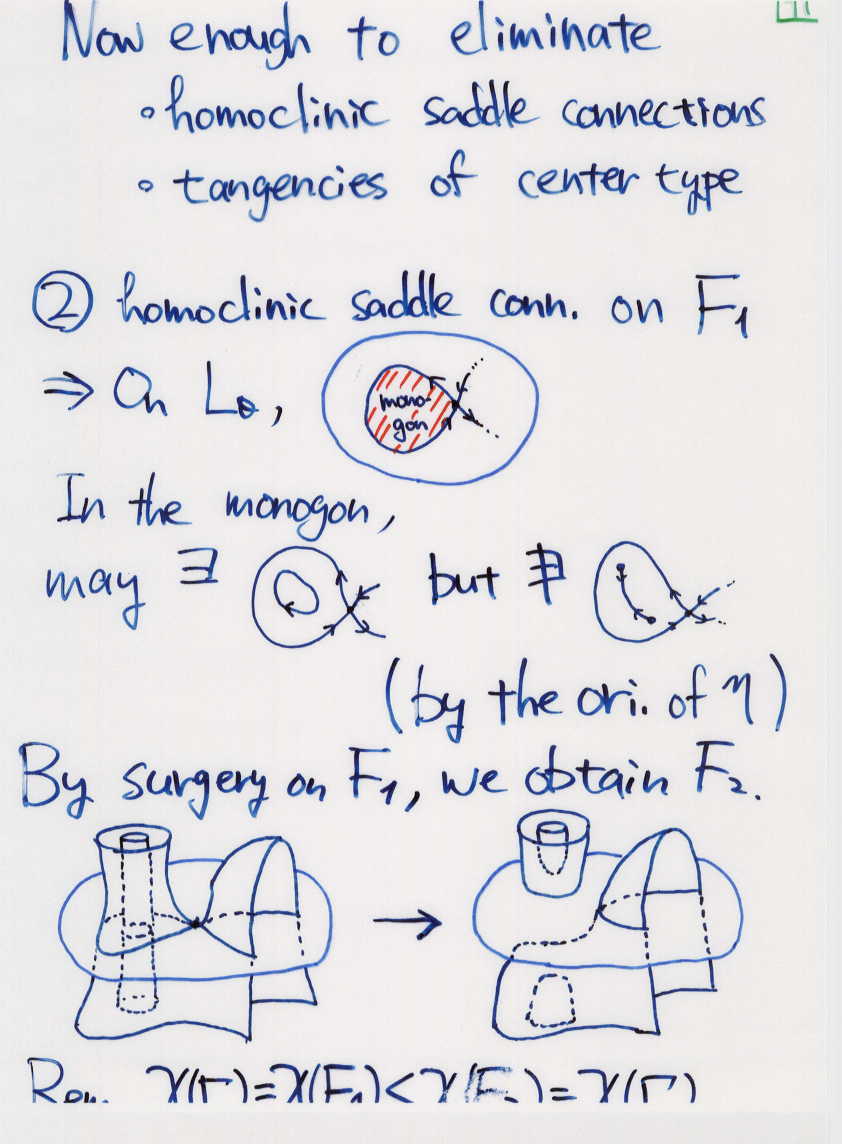 Now enough to eliminate
◦ homoclinic saddle connections
◦ tangencies of center type
② homoclinic saddle conn. on F₁
⇒ On L_θ,
mono-
gon
In the monogon,
may ∃ but ∄
(by the ori. of η)
By surgery on F₁, we obtain F₂.